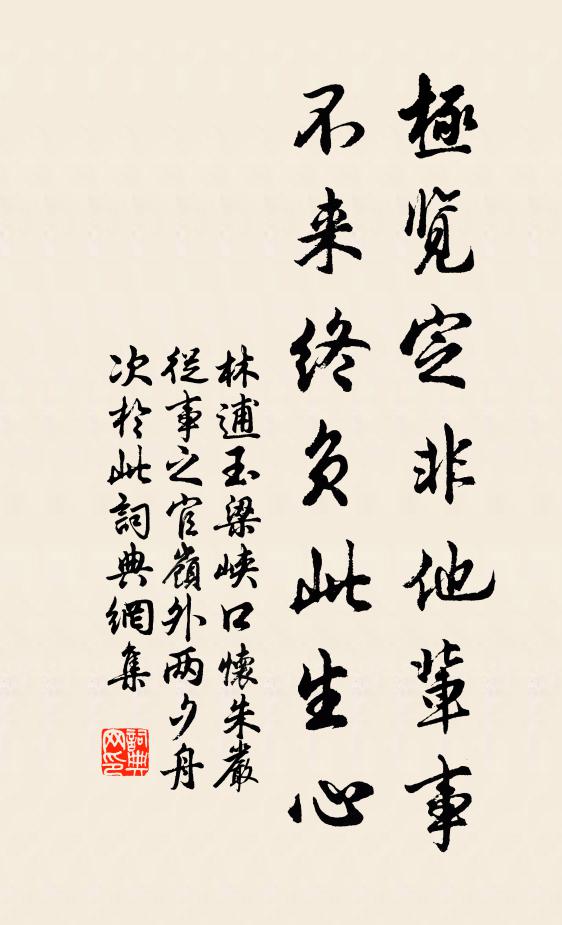 極览定非他軰事
不来終负此生心
林逋玉梁峡口懷朱嚴
從事之官嶺外两夕舟
次於此詞典網集
詞典
网印